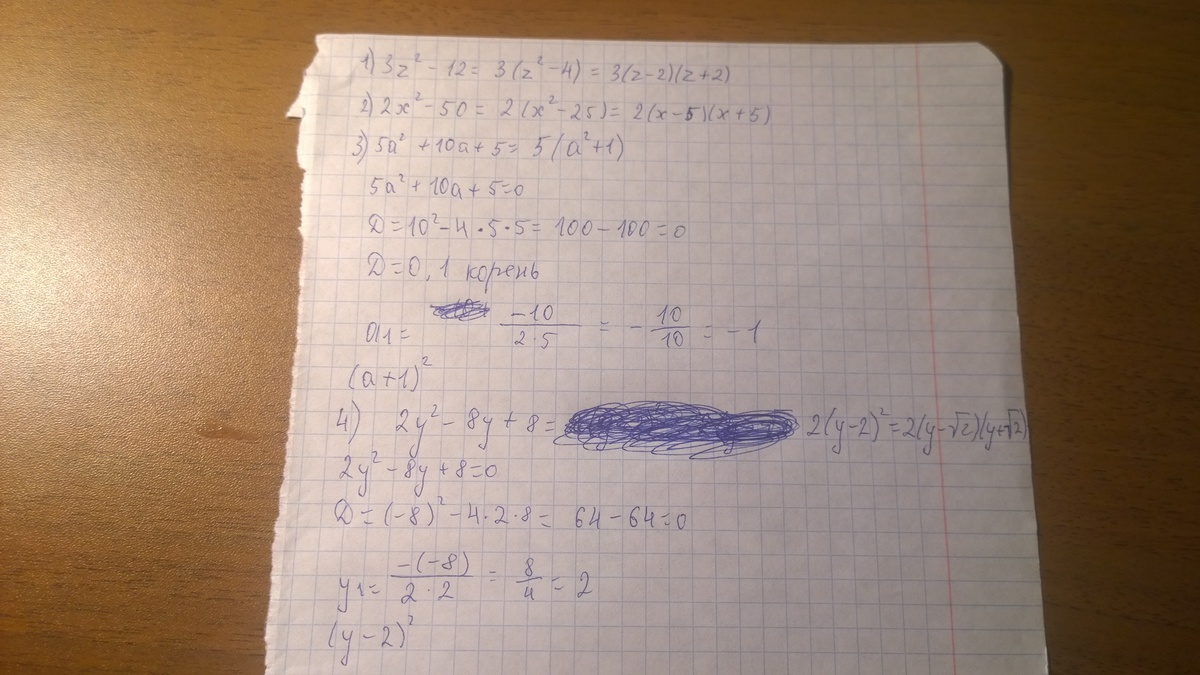 1) 3z² - 12 = 3(z² - 4) = 3(z-2)(z+2)
2) 2x² - 50 = 2(x² - 25) = 2(x-5)(x+5)
3) 5a² + 10a + 5 = 5(a²+1)
5a² + 10a + 5 = 0
D = 10² - 4 · 5 · 5 = 100 - 100 = 0
D = 0, 1 корень
a₁ = -10/2·5 = -10/10 = -1
(a+1)²
4) 2y² - 8y + 8 = 2(y-2)² = 2(y-√2)(y+√2)
2y² - 8y + 8 = 0
D = (-8)² - 4·2·8 = 64 - 64 = 0
y₁ = -(-8)/2·2 = 8/4 = 2
(y-2)²